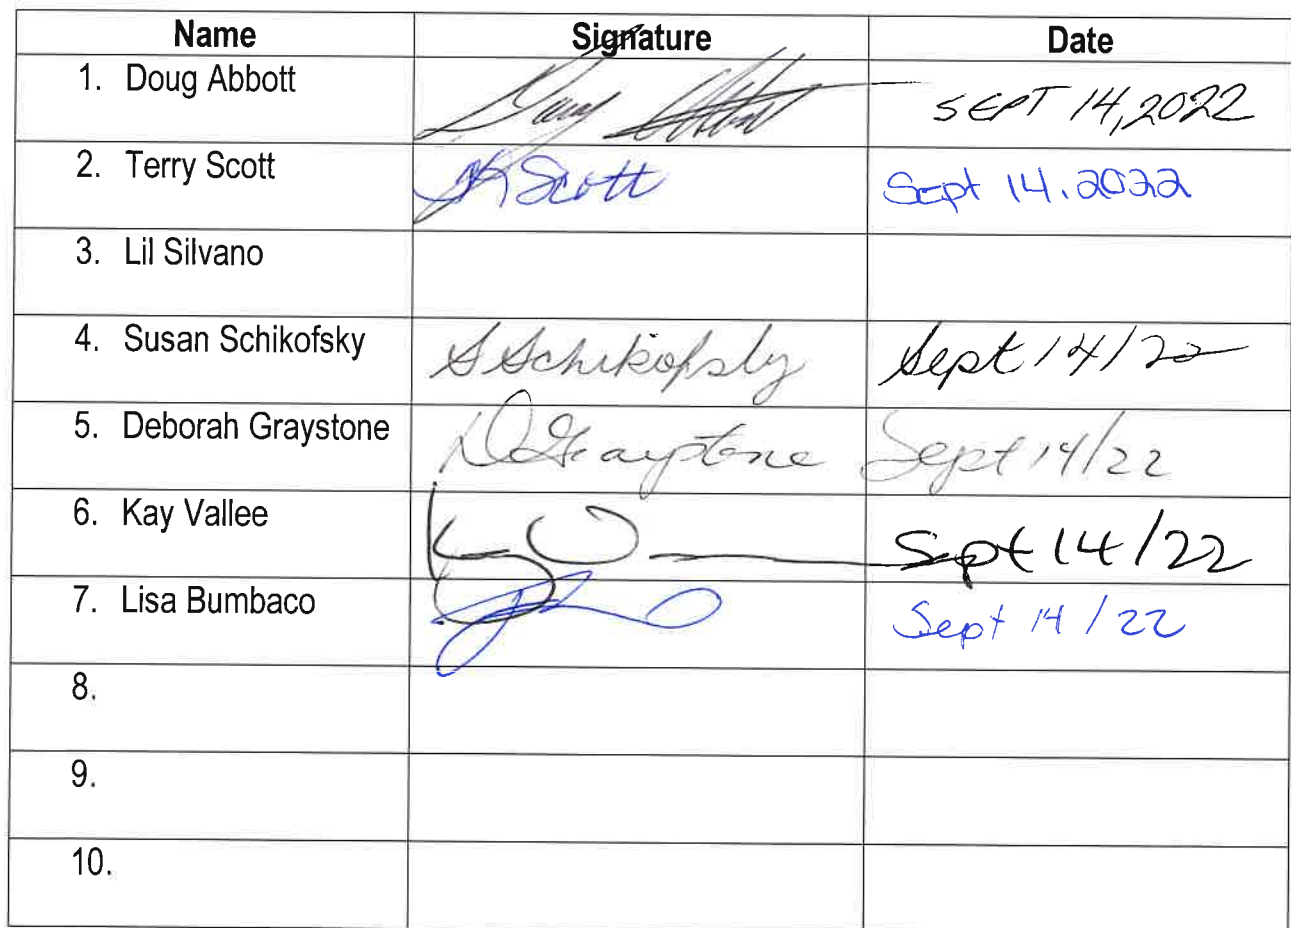 Name Signature Date
1. Doug Abbott Doug Abbott SEPT 14, 2022
2. Terry Scott Scott Sept 14. 2022
3. Lil Silvano
4. Susan Schikofsky S Schikofsky Sept 14/22
5. Deborah Graystone D Graystone Sept 14/22
6. Kay Vallee Sept 14/22
7. Lisa Bumbaco Sept 14/22
8.
9.
10.